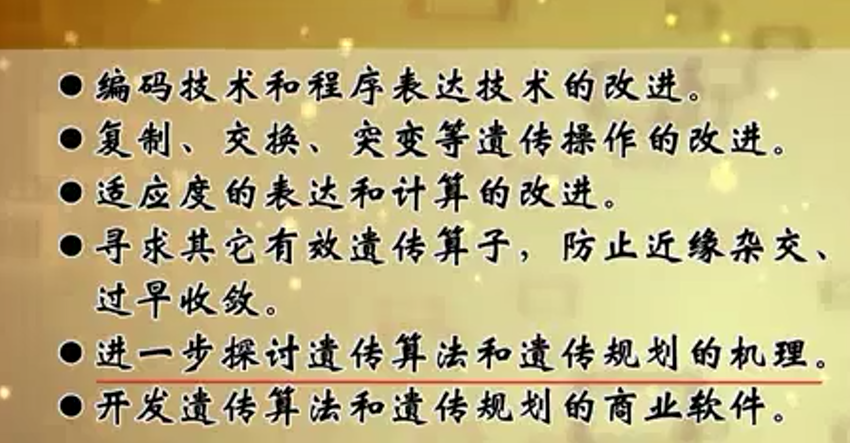 ●编码技术和程序表达技术的改进。
●复制、交换、突变等遗传操作的改进。
●适应度的表达和计算的改进。
●寻求其它有效遗传算子，防止近缘杂交、
过早收敛。
●进一步探讨遗传算法和遗传规划的机理。
●开发遗传算法和遗传规划的商业软件。